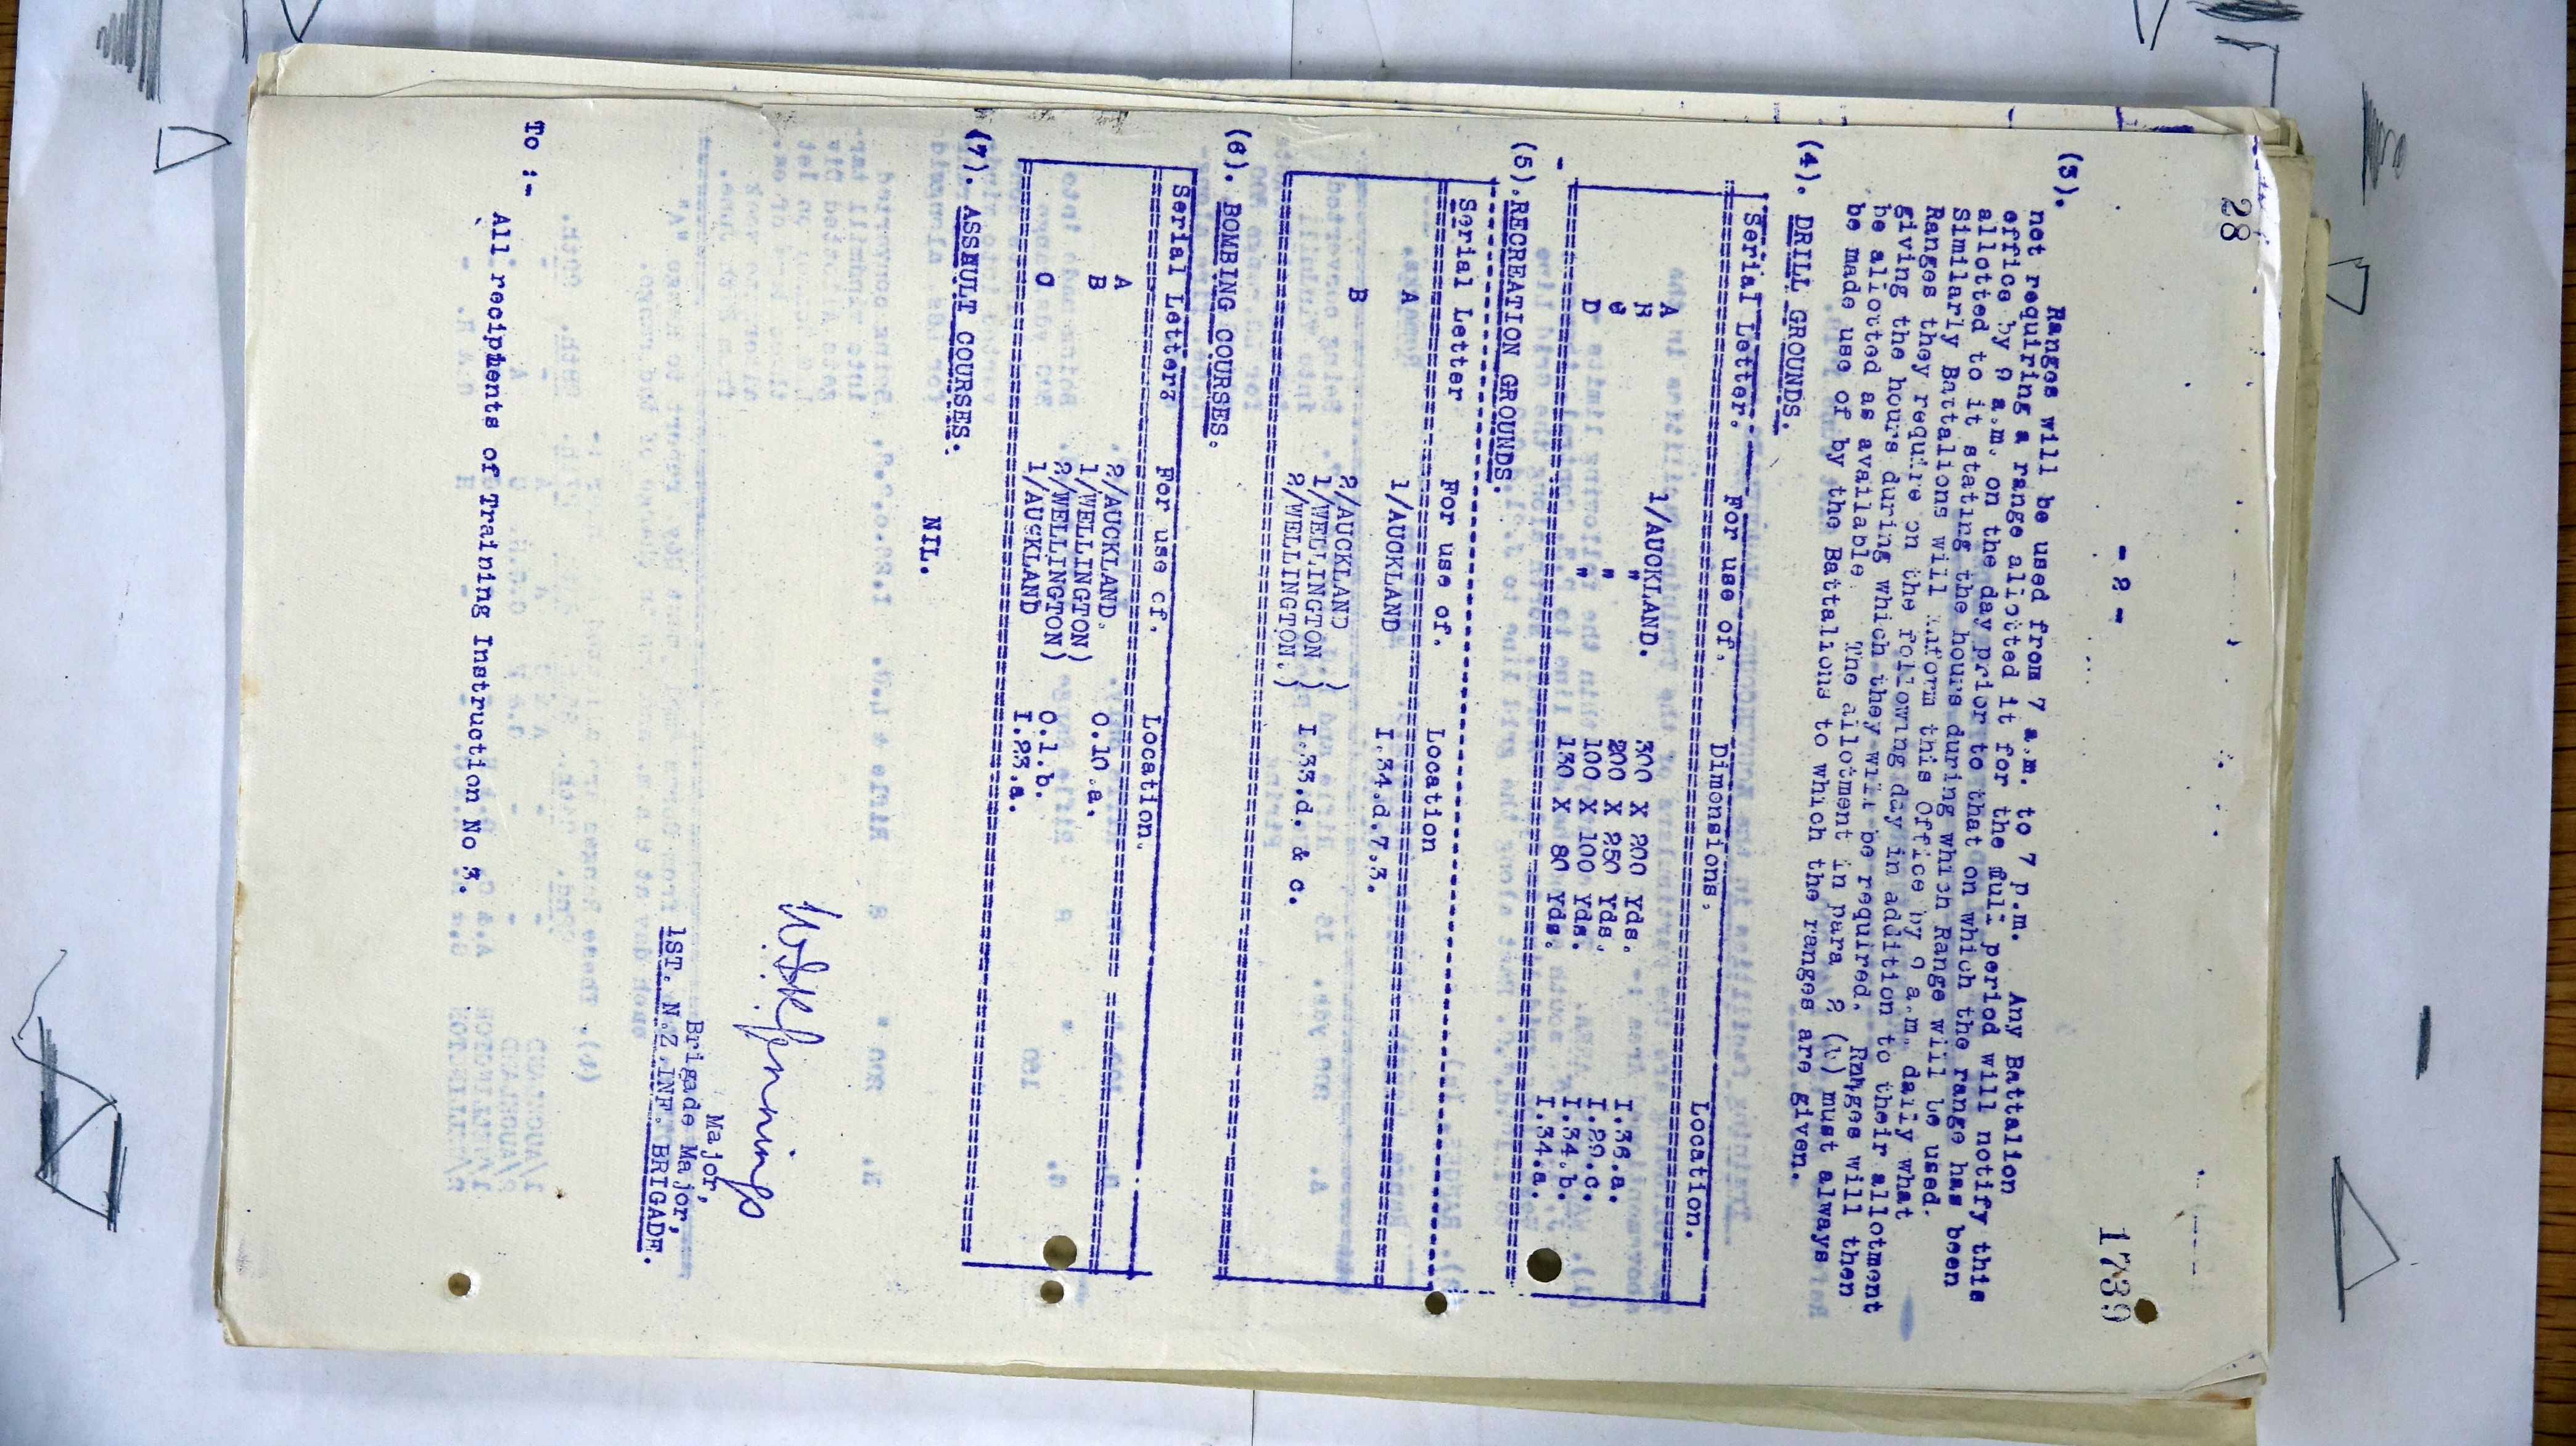 28
- 2 -
1739
(3). Ranges will be used from 7 a.m. to 7 p.m. Any Battalion
not requiring a range allotted it for the full period will notify this
office by 9 a.m. on the day prior to that on which the range has been
allotted to it stating the hours during which Range will be used.
Similarly Battalions will inform this Office by 9 a.m. daily what
Ranges they require on the following day in addition to their allotment
giving the hours during which they will be required. Ranges will then
be allotted as available. The allotment in para 2 must always
be made use of by the Battalions to which the ranges are given.
(4). DRILL GROUNDS.
Serial Letter. For use of. Dimensions. Location.
A 1/AUCKLAND. 300 X 200 Yds. I.36.a.
B " 200 X 250 Yds. I.29.c.
C " 100 X 100 Yds. I.34.b.
D " 130 X 80 Yds. I.34.a.
(5). RECREATION GROUNDS.
Serial Letter For use of. Location
A 1/AUCKLAND I.34.d.7.3.
B 2/AUCKLAND )
1/WELLINGTON ) I.33.d. & c.
2/WELLINGTON. )
(6). BOMBING COURSES.
Serial Letter For use of. Location.
A 2/AUCKLAND. O.10.a.
B 1/WELLINGTON )
2/WELLINGTON ) O.1.b.
C 1/AUCKLAND I.23.a.
(7). ASSAULT COURSES.
NIL.
Major,
Brigade Major,
1ST. N.Z. INF. BRIGADE.
To :-
All recipients of Training Instruction No 3.